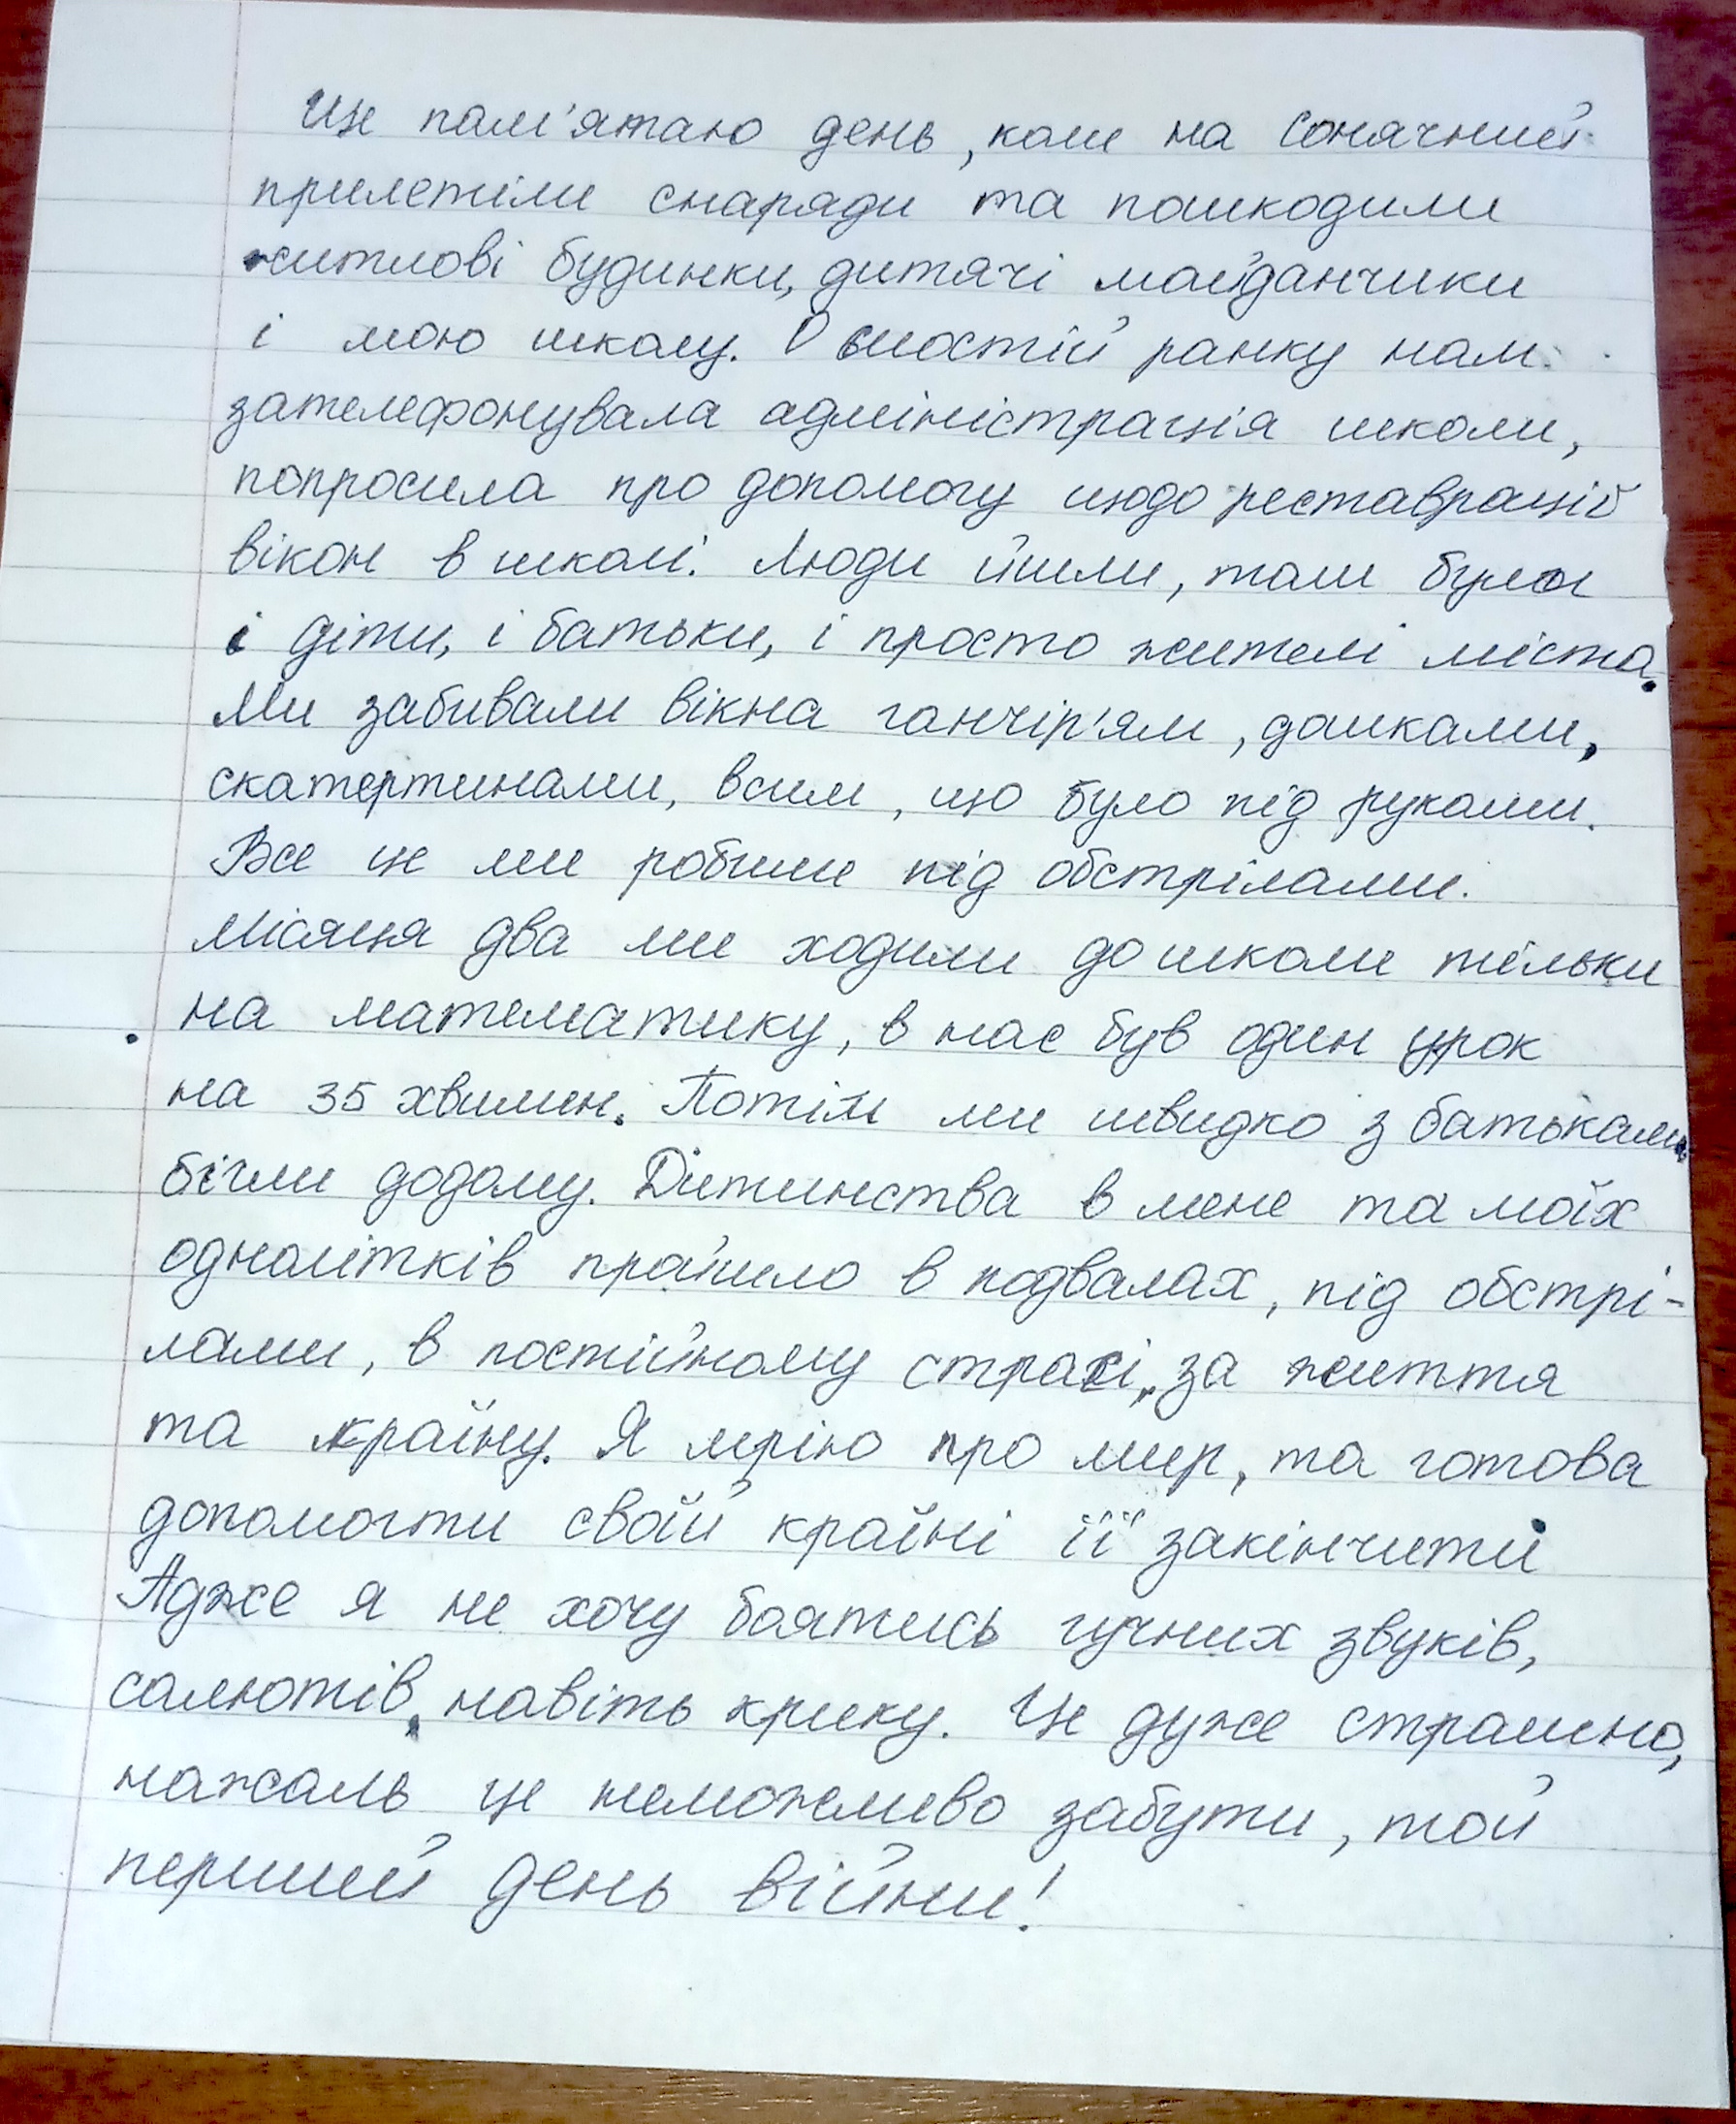 Ще пам'ятаю день, коли на Сонячний
прилетіли снаряди та пошкодили
житлові будинки, дитячі майданчики
і мою школу. О шостій ранку нам
зателефонувала адміністрація школи,
попросила про допомогу щодо реставрацій
вікон в школі. Люди йшли, там були
і діти, і батьки, і просто жителі міста.
Ми забивали вікна ганчір'ям, дошками,
скатертинами, всим, що було під руками.
Все це ми робили під обстрілами.
Місяця два ми ходили до школи тільки
на математику, в нас був один урок
на 35 хвилин. Потім ми швидко з батьками
бігли додому. Дитинства в мене та моїх
однолітків пройшло в подвалах, під обстрі-
лами, в постійному страсі, за життя
та країну. Я мрію про мир, та готова
допомогти своїй країні її закінчити
Адже я не хочу боятись гучних звуків,
салютів, навіть крику. Це дуже страшно,
нажаль це неможливо забути, той
перший день війни!